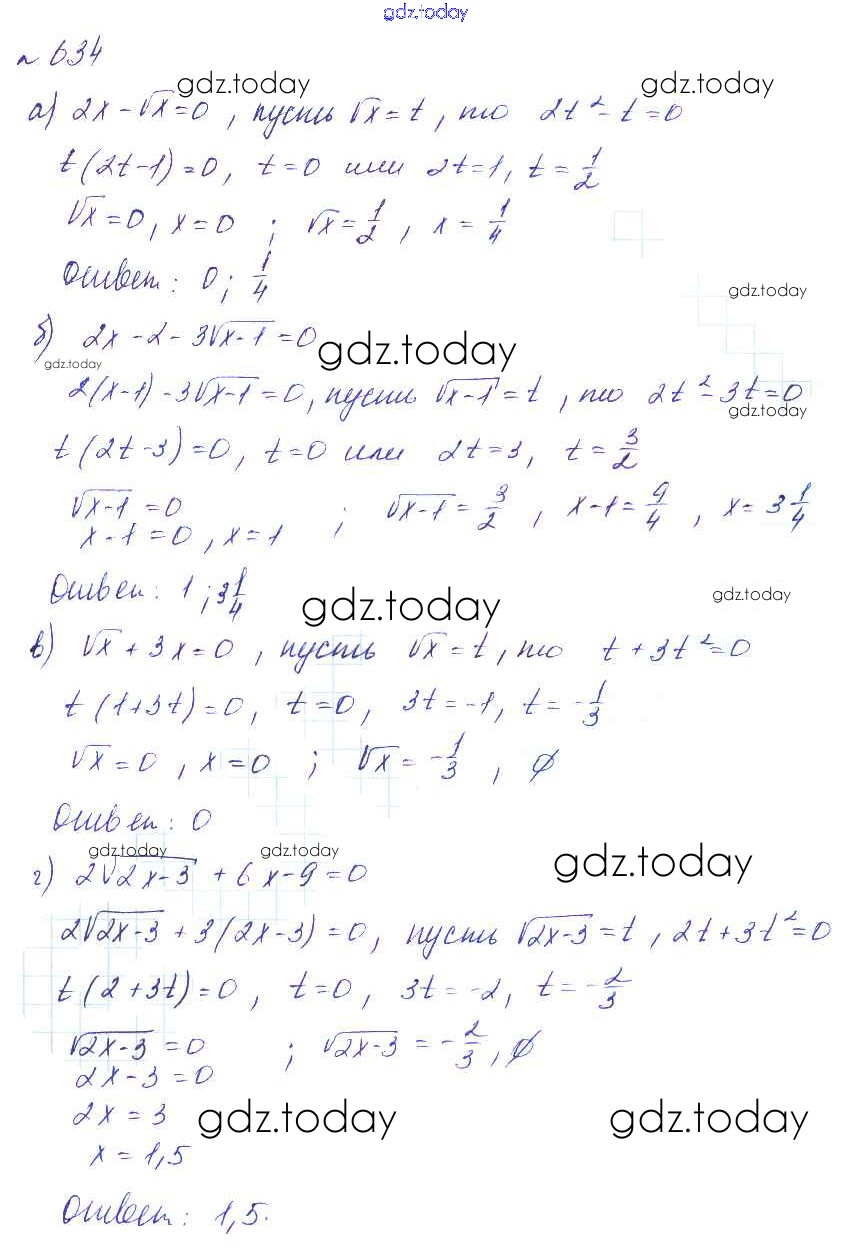 gdz.today
№ 634
gdz.today gdz.today
а) 2x - √x = 0 , пусть √x = t , то 2t² - t = 0
t(2t-1) = 0, t = 0 или 2t = 1, t = 1/2
√x = 0, x = 0 ; √x = 1/2 , x = 1/4
Ответ: 0; 1/4
gdz.today
б) 2x - 2 - 3√(x-1) = 0
gdz.today
gdz.today
2(x-1) - 3√(x-1) = 0, пусть √(x-1) = t , то 2t² - 3t = 0
gdz.today
t(2t-3) = 0, t = 0 или 2t = 3, t = 3/2
√(x-1) = 0 ; √(x-1) = 3/2 , x-1 = 9/4 , x = 3 1/4
x-1 = 0 , x = 1
Ответ: 1 ; 3 1/4
gdz.today gdz.today
в) √x + 3x = 0 , пусть √x = t , то t + 3t² = 0
t(1+3t) = 0, t = 0, 3t = -1, t = -1/3
√x = 0 , x = 0 ; √x = -1/3 , ∅
Ответ: 0
gdz.today gdz.today gdz.today
г) 2√(2x-3) + 6x - 9 = 0
2√(2x-3) + 3(2x-3) = 0, пусть √(2x-3) = t , 2t + 3t² = 0
t(2+3t) = 0 , t = 0, 3t = -2, t = -2/3
√(2x-3) = 0 ; √(2x-3) = -2/3 , ∅
2x-3 = 0
2x = 3
gdz.today gdz.today
x = 1,5
Ответ: 1,5.